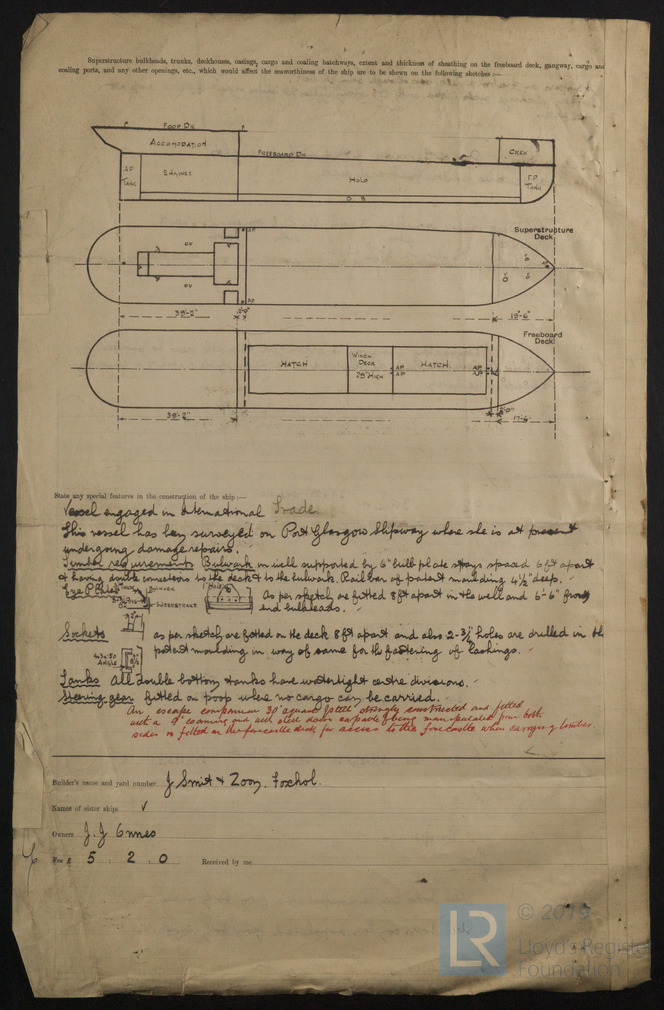 Superstructure bulkheads, trunks, deckhouses, casings, cargo and coaling hatchways, extent and thickness of sheathing on the freeboard deck, gangway, cargo and
coaling ports, and any other openings, etc., which would affect the seaworthiness of the ship are to be shown on the following sketches :—
POOP DK
ACCOMODATION
FREEBOARD DK
CREW
AP TANK
ENGINES
HOLD
F.P TANK
D B
Superstructure
Deck
39'-2"
19'-6"
Freeboard
Deck
HATCH
WINCH DECK
HATCH
AP
AP
AP
AP
39'-2"
17'-6"
State any special features in the construction of the ship :—
Vessel engaged in International Trade
This vessel has been surveyed on Port Glasgow Slipway where she is at present
undergoing damage repairs.
Timber requirements Bulwark in well supported by 6" bulb plate stays spaced 6 ft apart
& having double connections to the deck & to the bulwark. Rail bar of patent moulding 4½" deep.
Eye Plates
As per sketch are fitted 8 ft apart in the well and 6'-6" from
end bulkheads.
Sockets as per sketch are fitted on the deck 8 ft apart and also holes are drilled in the
ANGLE
patent moulding in way of same for the fastening of lashings.
Tanks All double bottom tanks have watertight centre divisions.
Steering gear fitted on poop where no cargo can be carried.
An escape companion 30" square of steel strongly constructed and fitted
with a 9" coaming and with steel doors capable of being manipulated from both
sides is fitted on the forecastle deck for access to the forecastle when carrying timber.
Builder's name and yard number J Smit & Zoon. Foxhol.
Names of sister ships
Owners J. J Onnes
Fee £ 5 : 2 : 0 Received by me
LR
© 2019
Lloyd's Register
Foundation